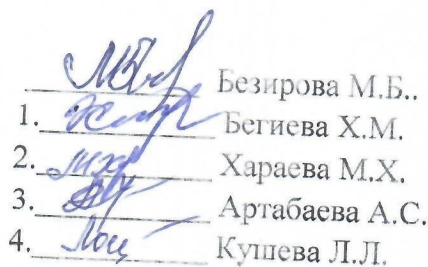 Безирова М.Б..
1. Бегиева Х.М.
2. Хараева М.Х.
3. Артабаева А.С.
4. Кушева Л.Л.